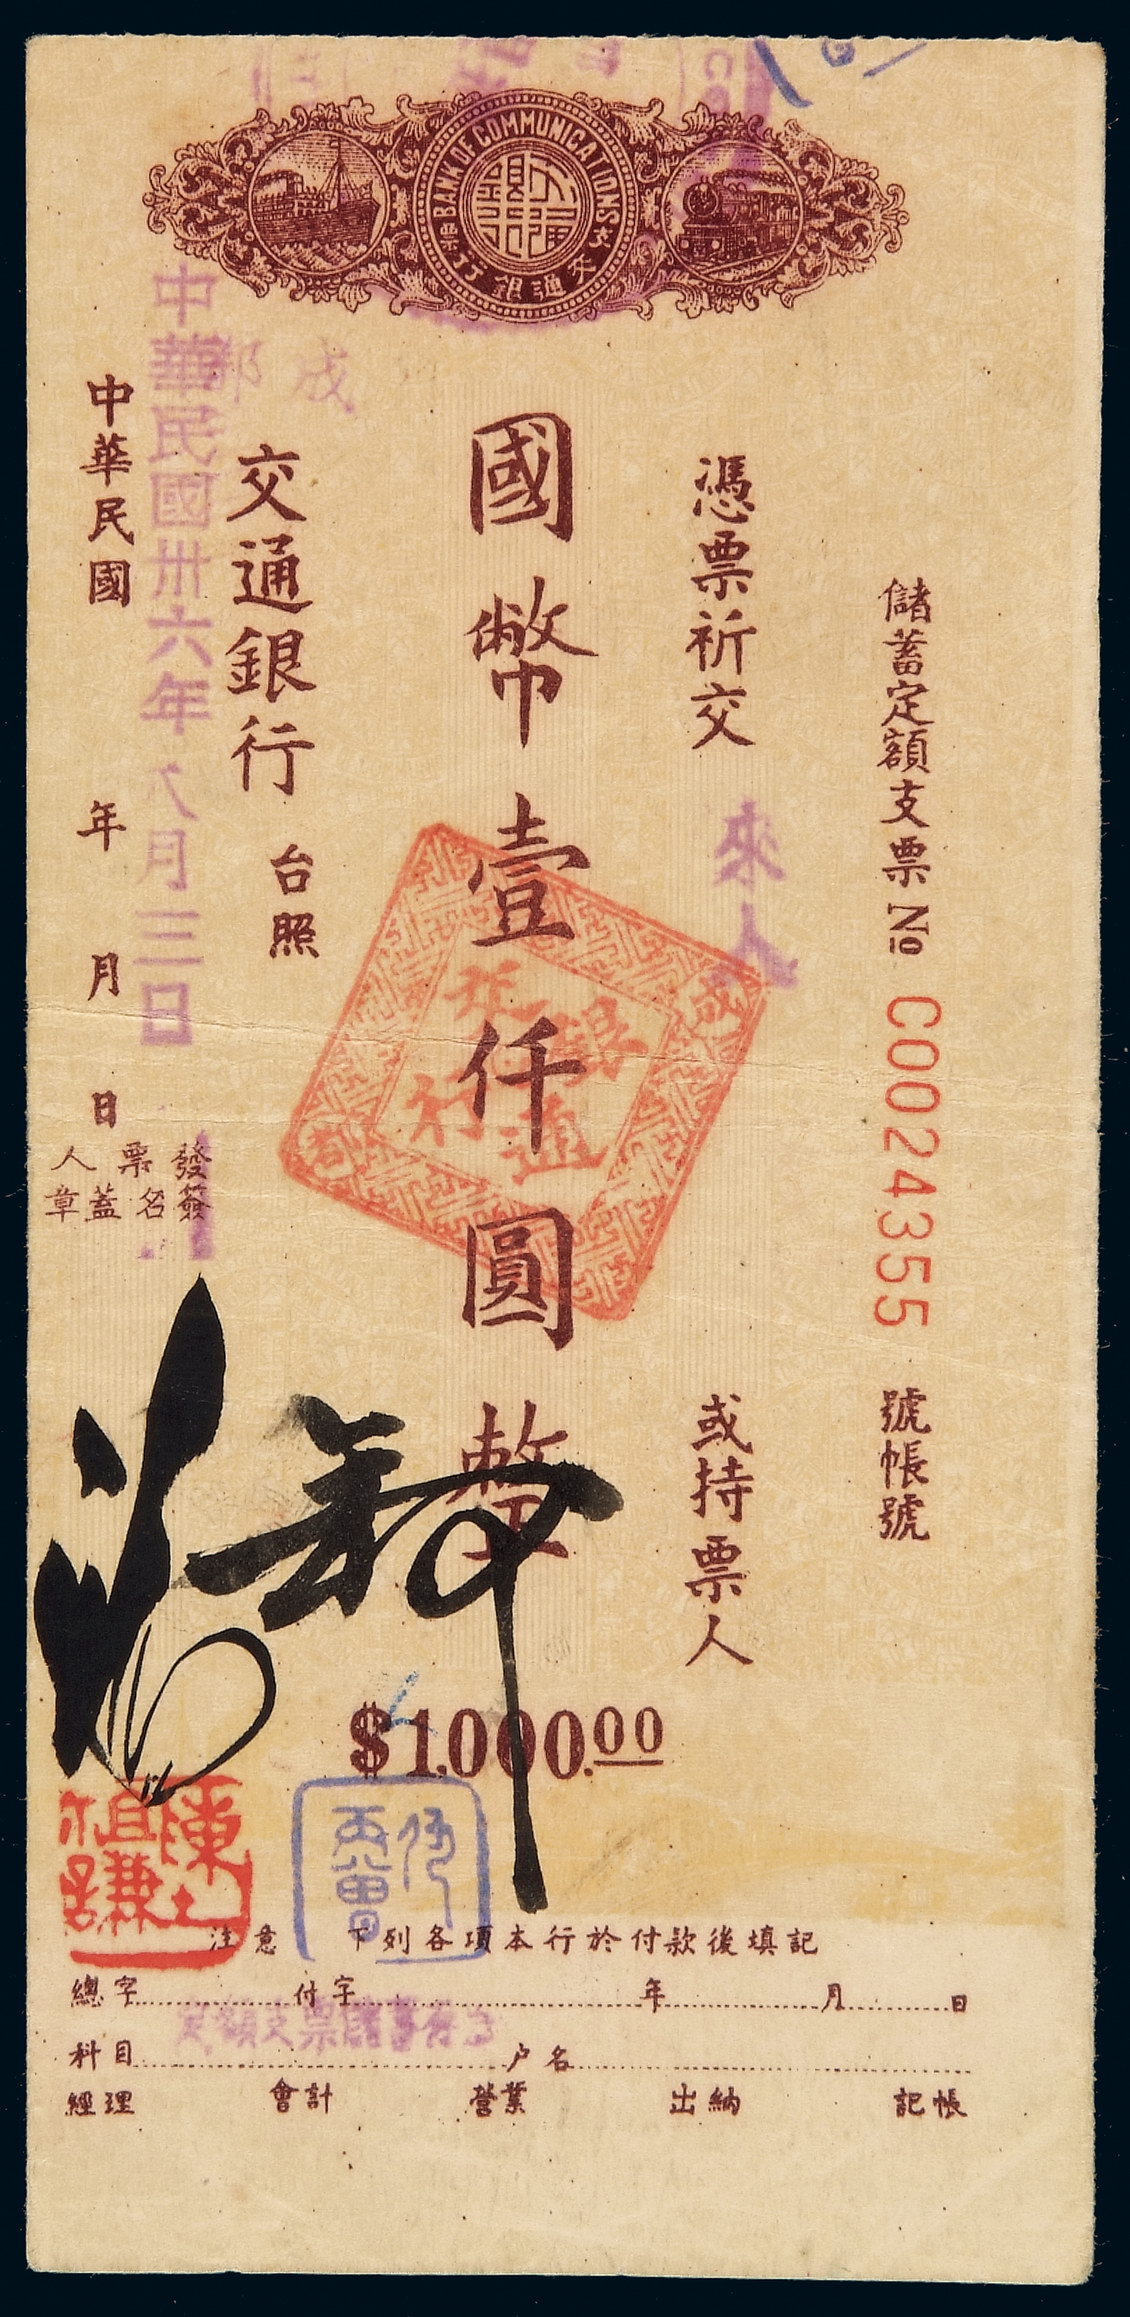 BANK OF COMMUNICATIONS
行銀通交
儲蓄定額支票 № C0024355 號帳號
憑票祈交 來人 或持票人
國幣壹仟圓整
$1,000.00
成都
交通銀行 台照
中華民國卅六年 月三日
中華民國 年 月 日
發票人
簽名蓋章
成都
交通銀行
注意 下列各項本行於付款後填記
總字 付字 年 月 日
科目 户名
經理 會計 營業 出納 記帳